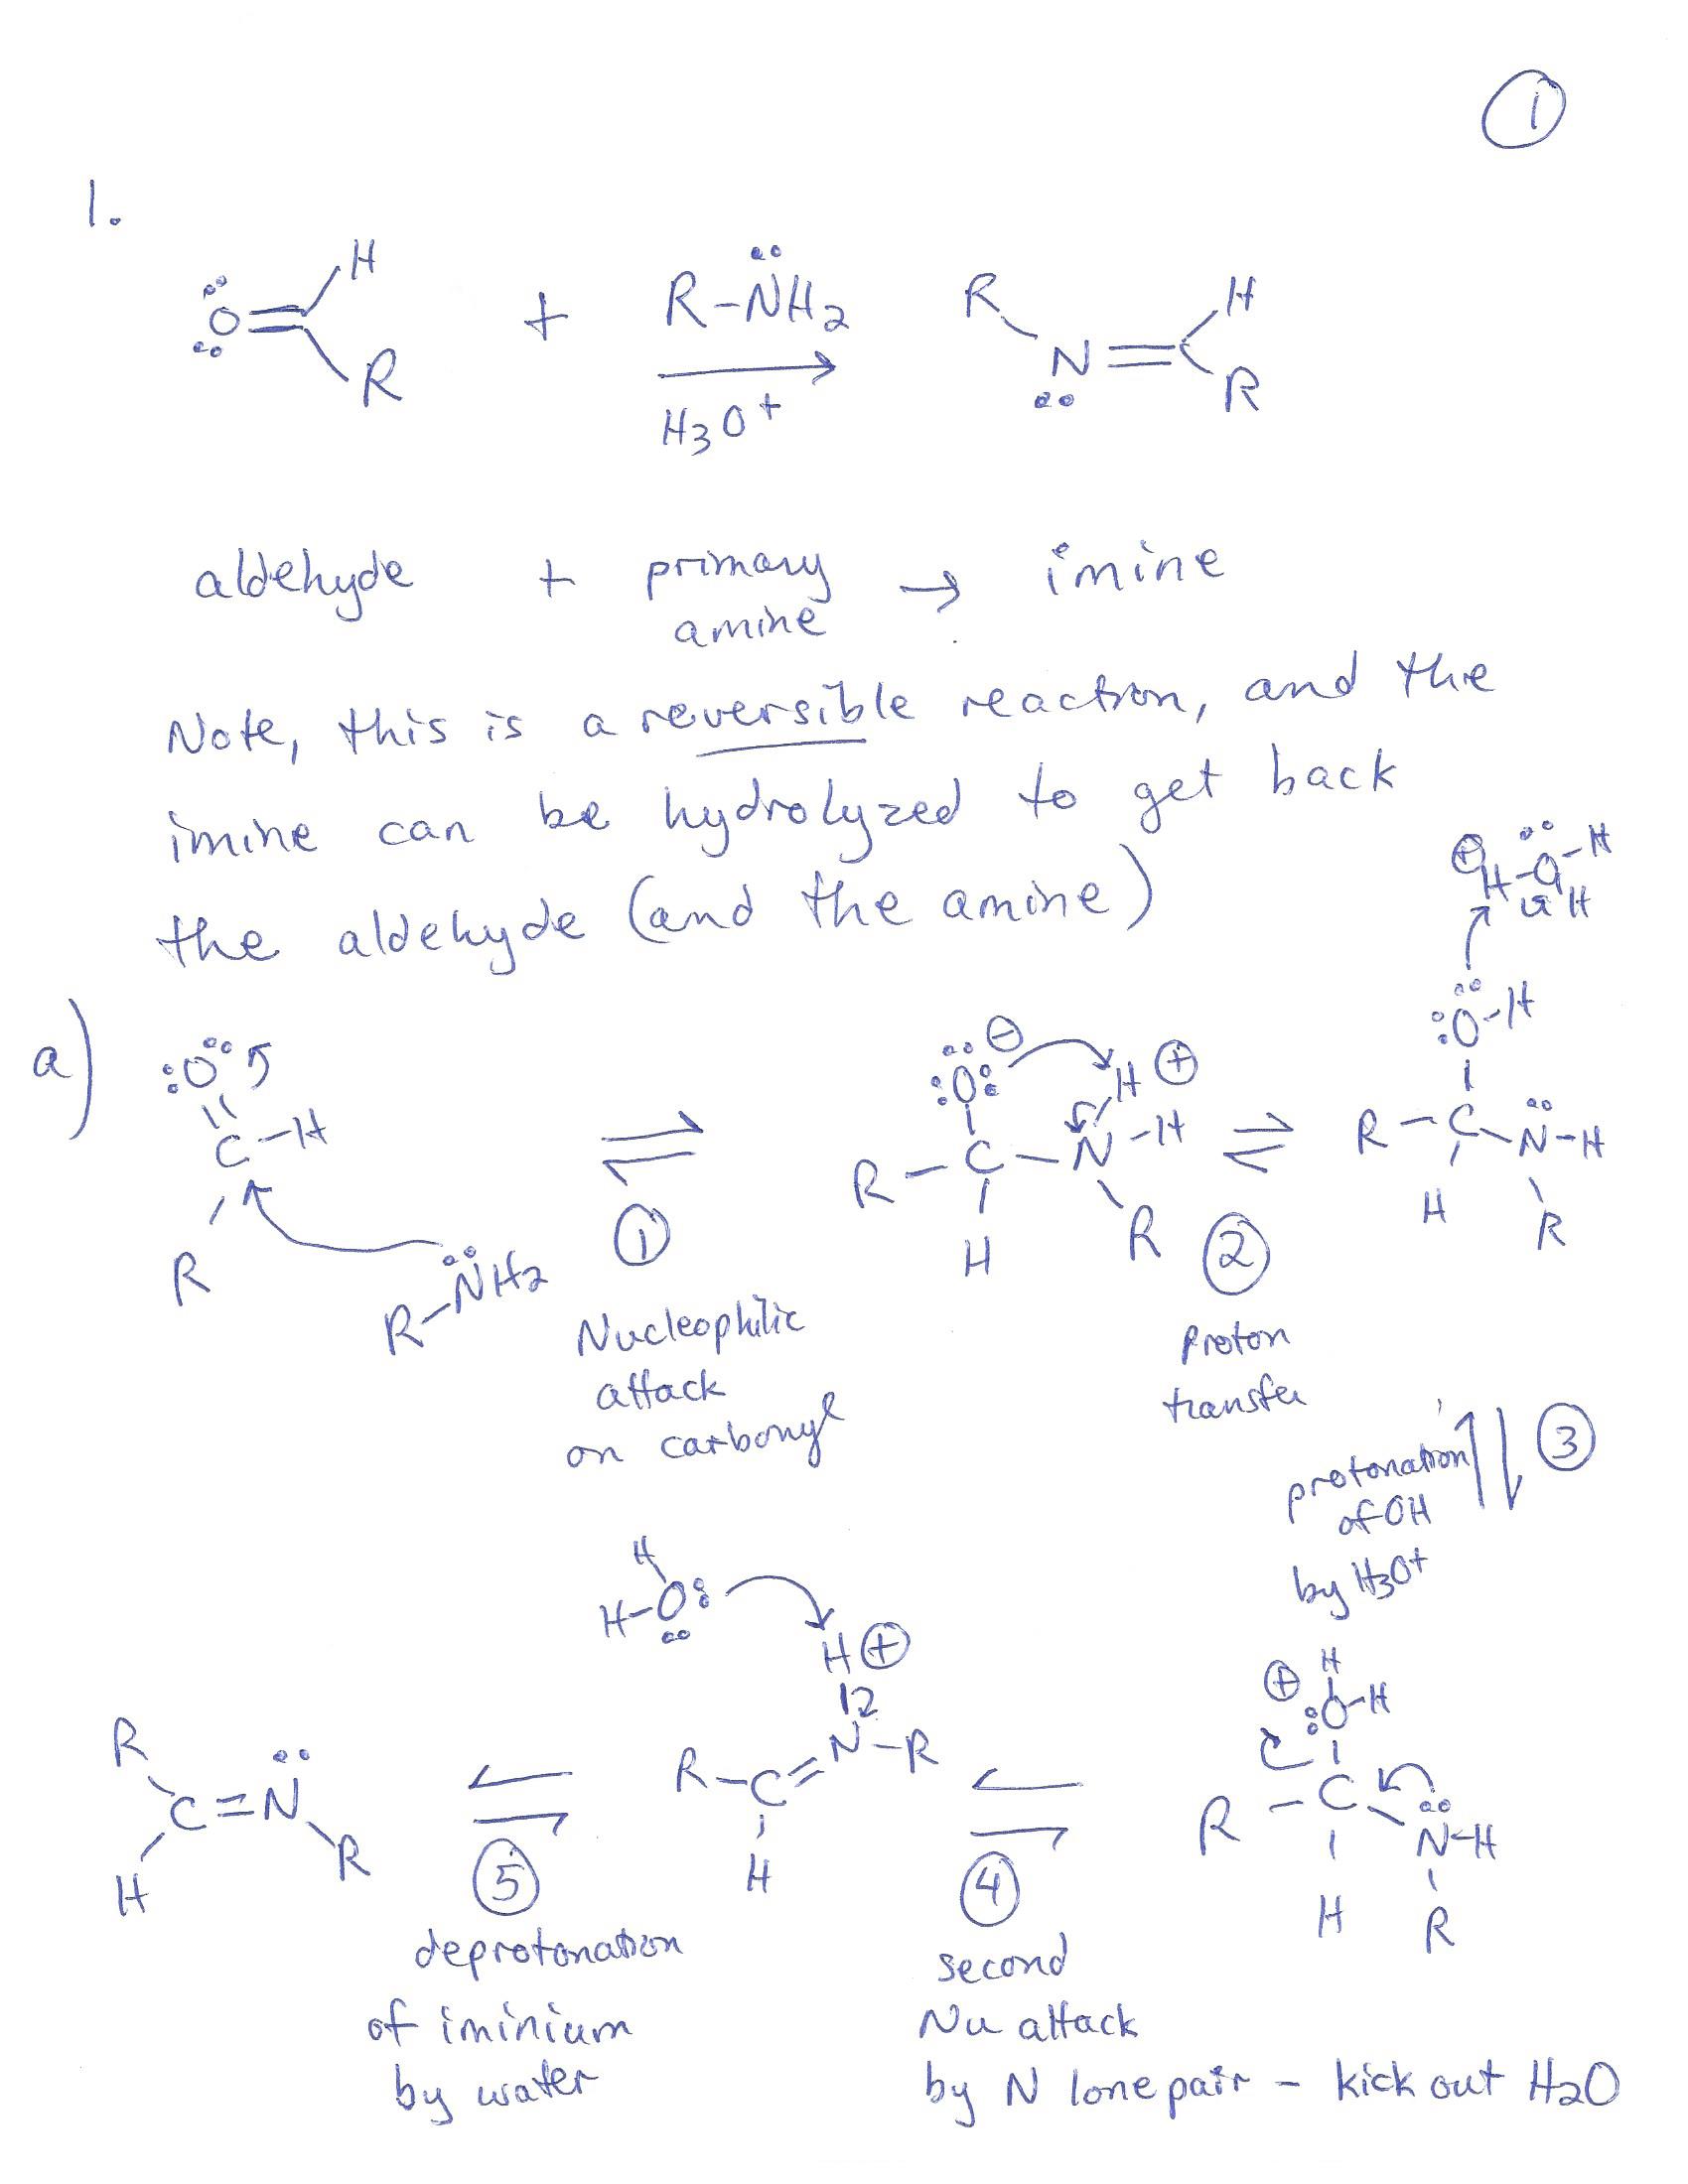 ①
1.
O = H R + R-NH2 H3O+ → R N = H R
aldehyde + primary → imine
amine
Note, this is a reversible reaction, and the
imine can be hydrolyzed to get back
the aldehyde (and the amine)
⊕ H-O-H H
a)
:O: C-H R R-NH2
⇌ ①
Nucleophilic
attack
on carbonyl
:O: ⊖ R-C-N-H H ⊕ H R
⇌ ②
Proton
transfer
:O-H R-C-N-H H R
③
protonation
of OH
by H3O+
⊕ H O-H R-C-N-H H R
④
second
Nu attack
by N lone pair - kick out H2O
H H-O:
H ⊕ R-C=N-R H
⑤
deprotonation
of iminium
by water
R C=N H R